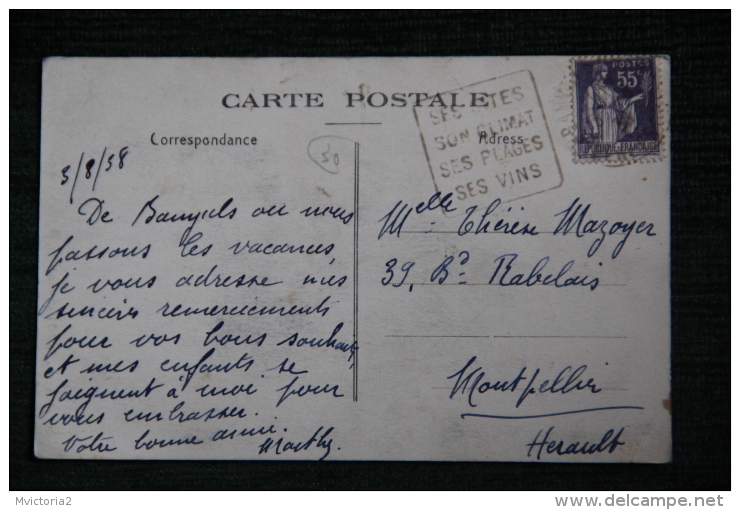 CARTE POSTALE
Correspondance
Adresse
30
SES SITES
SON CLIMAT
SES PLAGES
SES VINS
POSTES
55c
REPUBLIQUE FRANÇAISE
3/8/38
De Banyuls ou nous
passons les vacances,
je vous adresse mes
sincères remerciements
pour vos bons souhaits,
et mes enfants se
joignent à moi pour
vous embrasser.
Votre bonne amie.
Marthy.
Melle Thérèse Mazoyer
39, Bd Rabelais
Montpellier
Herault
Mvictoria2
www.delcampe.net